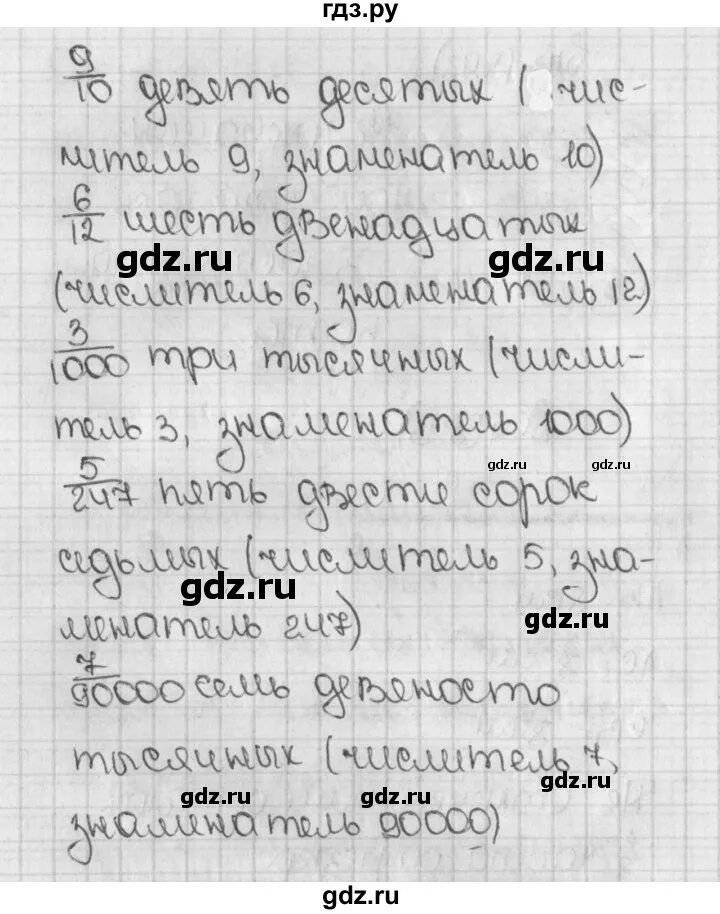 гдз.ру
9/10 девять десятых ( чис-
литель 9, знаменатель 10)
6/12 шесть двенадцатых
gdz.ru gdz.ru
(числитель 6, знаменатель 12)
3/1000 три тысячных (числи-
тель 3, знаменатель 1000)
gdz.ru gdz.ru
5/247 пять двести сорок
седьмых (числитель 5, зна-
gdz.ru gdz.ru
менатель 247)
7/90000 семь девяносто
тысячных (числитель 7,
gdz.ru gdz.ru gdz.ru
знаменатель 90000)
gdz.ru